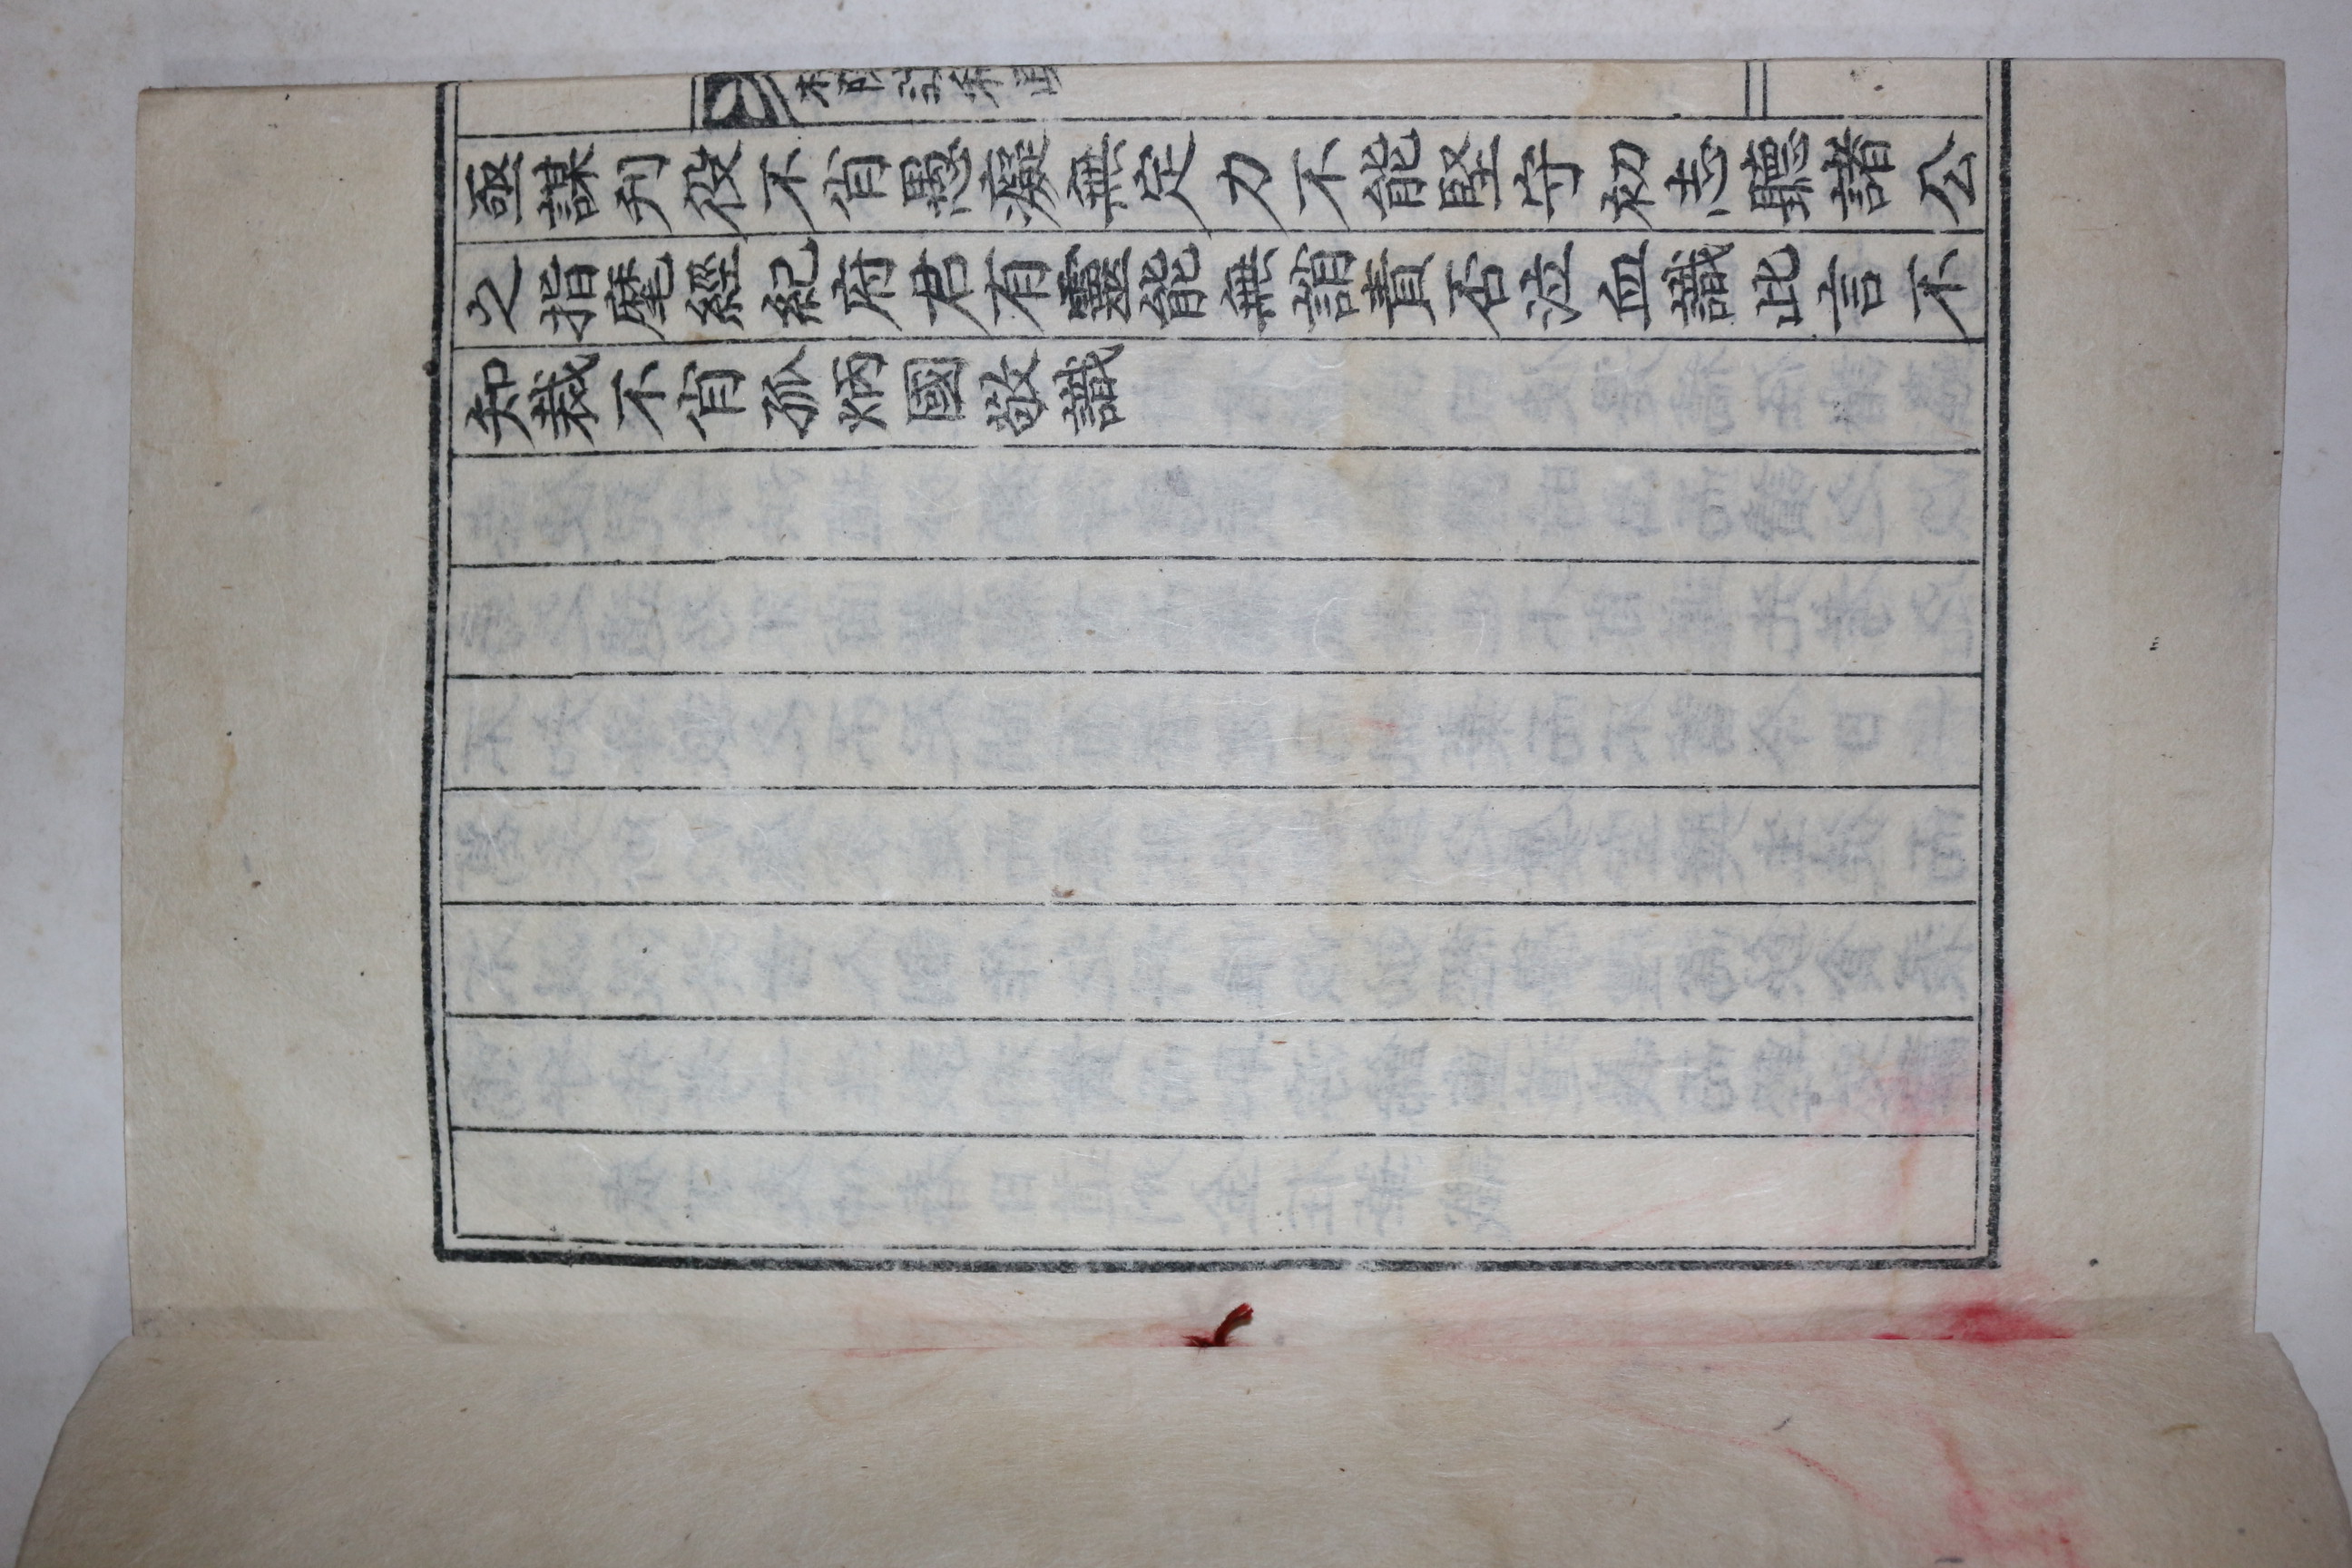 亟謀刋役不肖愚癡無定力不能堅守初志聽諸公
之指麾經紀府君有靈能無誚責否泣血識此言不
知裁不肖孤炳國敬識